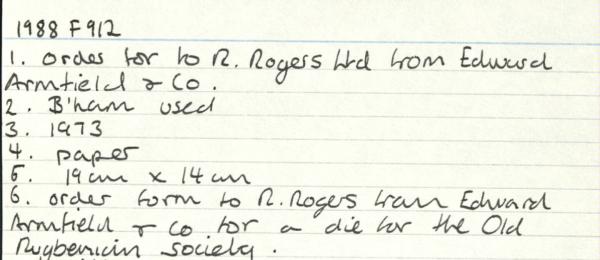 1988 F912
1. order for to R. Rogers Ltd from Edward
Armfield & Co.
2. B'ham used
3. 1973
4. paper
5. 19cm x 14cm
6. order form to R. Rogers from Edward
Armfield & Co for a die for the Old
Rugbeian society.